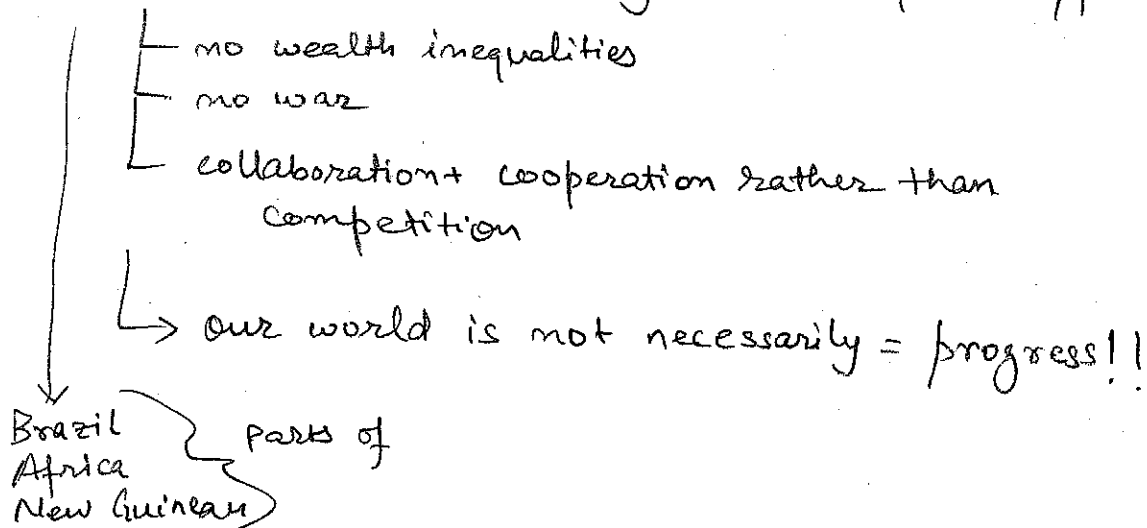 no wealth inequalities
no war
collaboration + cooperation rather than
competition
→ our world is not necessarily = progress!!
Brazil
Africa
New Guinean
parts of